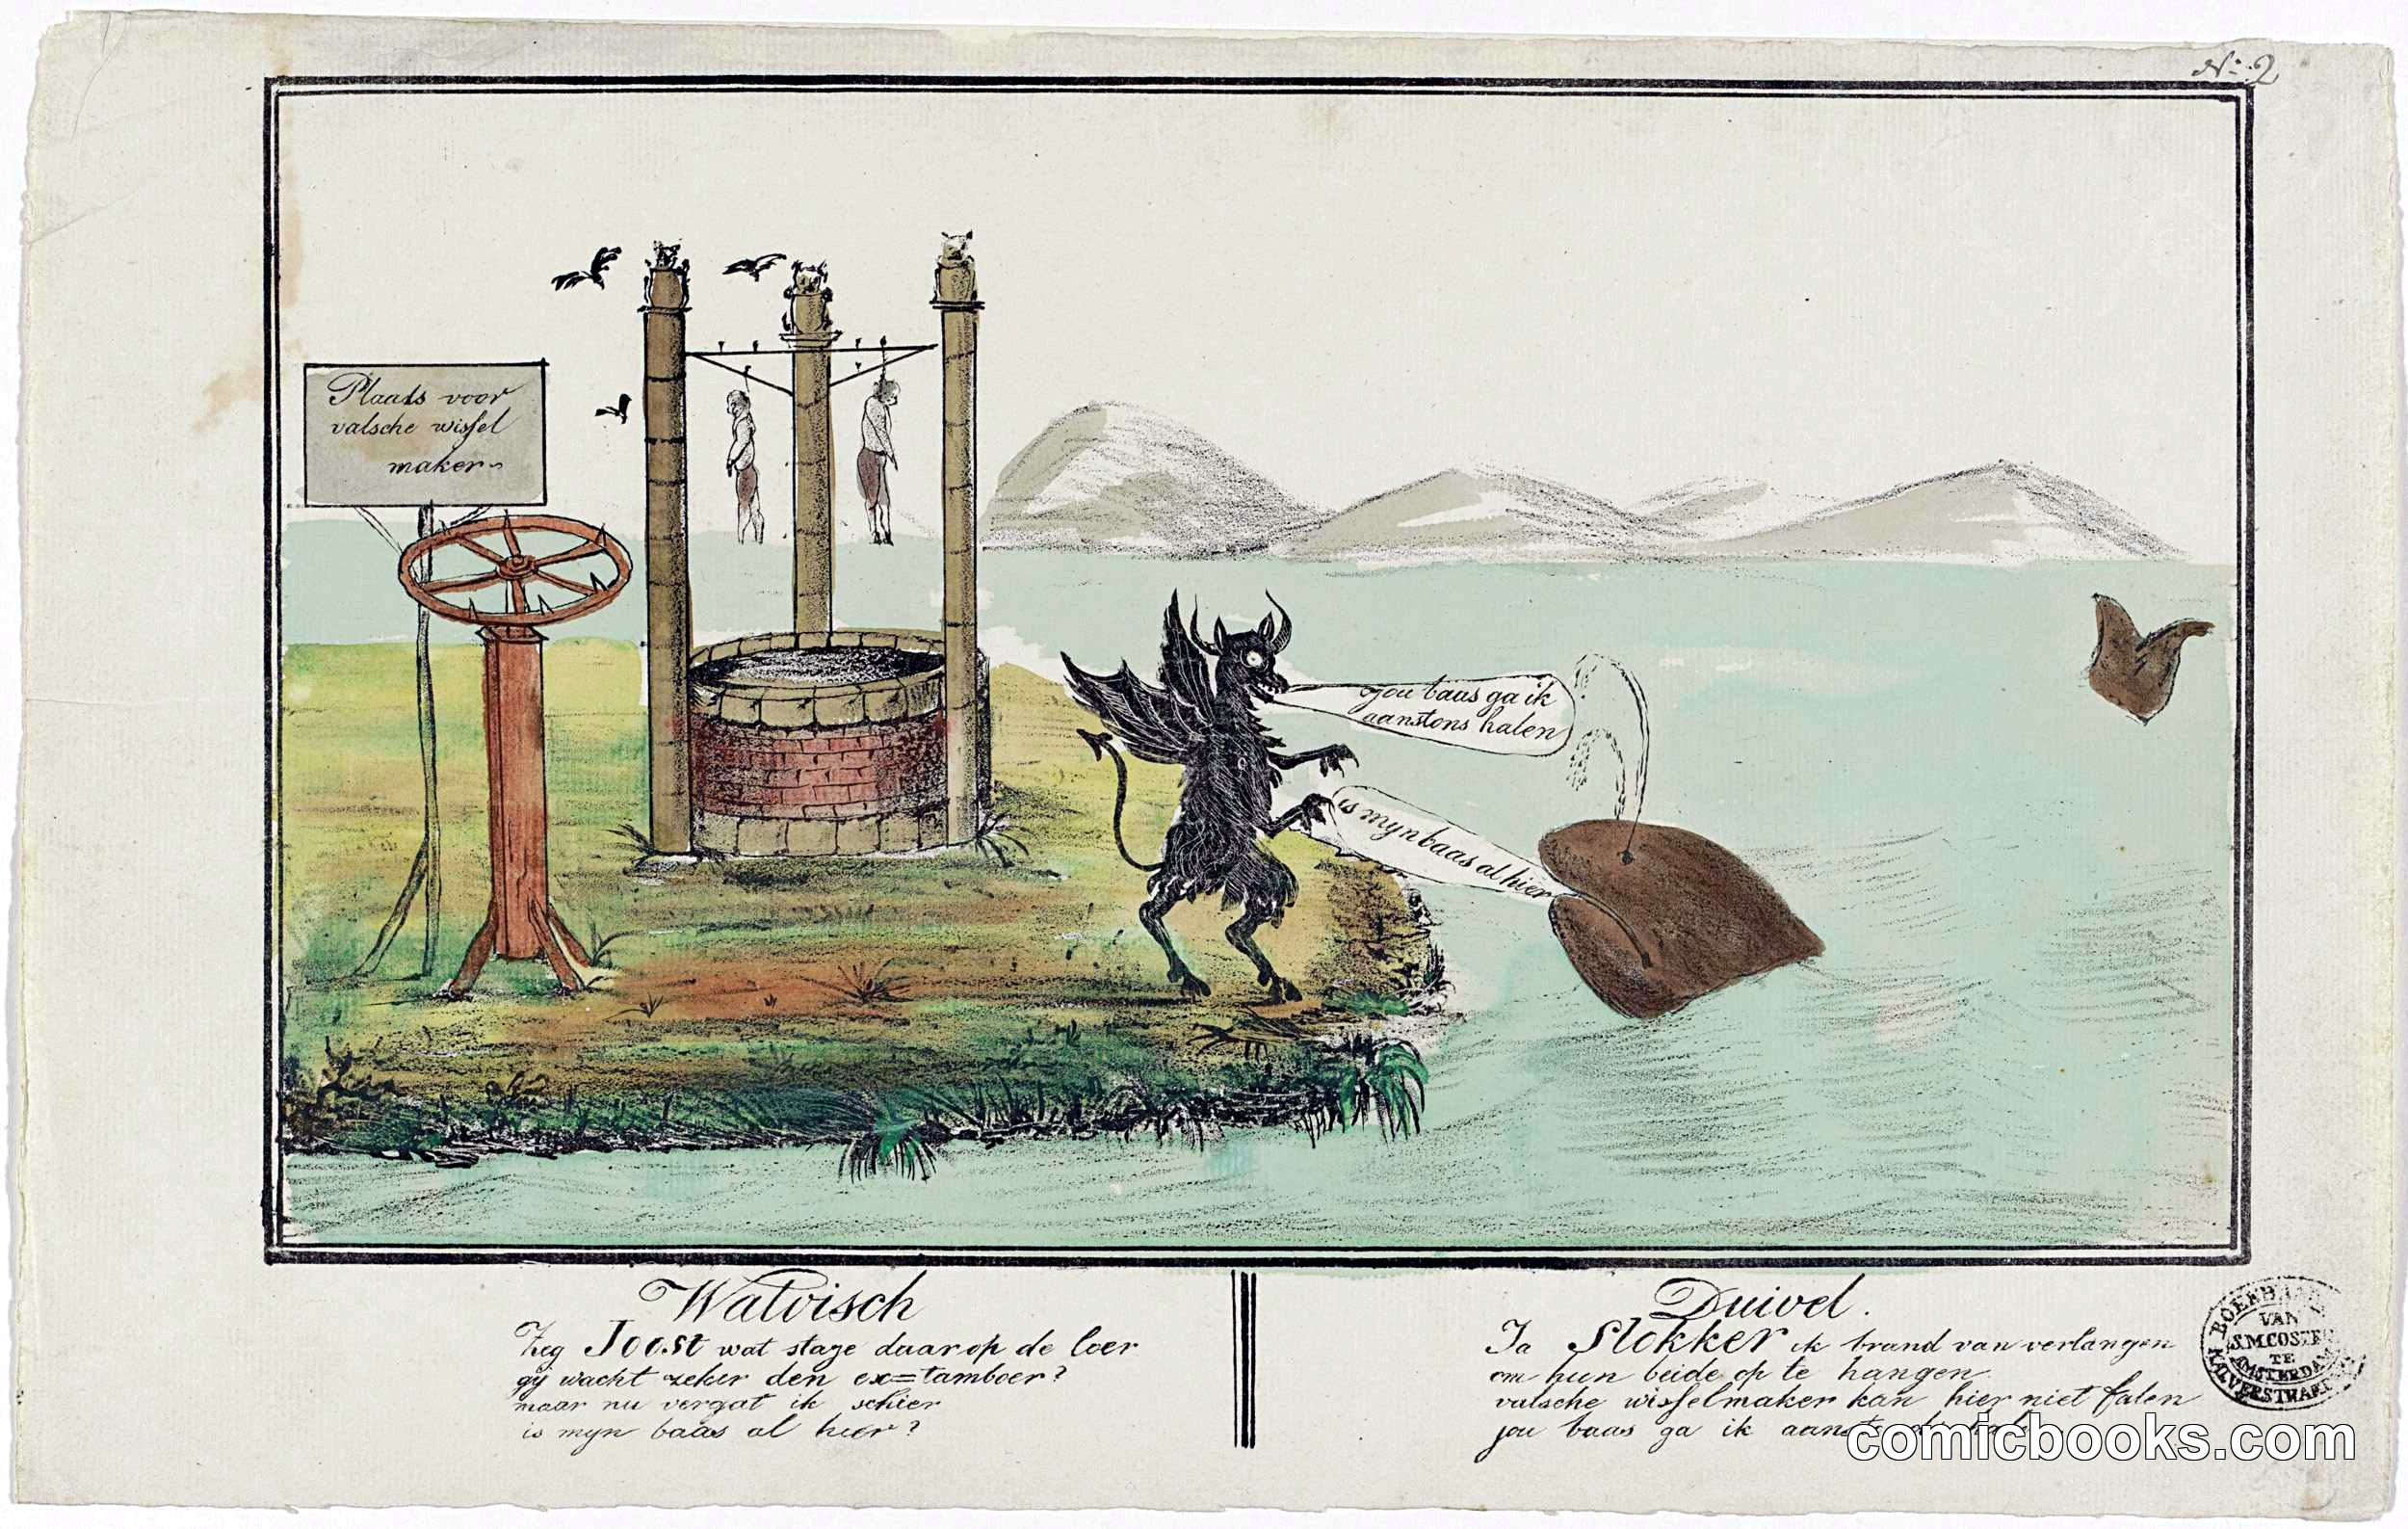 No. 2
Plaats voor
valsche wissel
maker
jou baas ga ik
aanstons halen
is mijn baas al hier
Walvisch
Zeg Joost wat staje daar op de loer
gij wacht zeker den ex=tamboer?
maar nu vergat ik schier
is mijn baas al hier?
Duivel.
Ja Slokker ik brand van verlangen
om hun beide op te hangen
valsche wisselmaker kan hier niet falen
jou baas ga ik
VAN
S.M.COSTER
TE
AMSTERDAM
KALVERSTRAAT
comicbooks.com